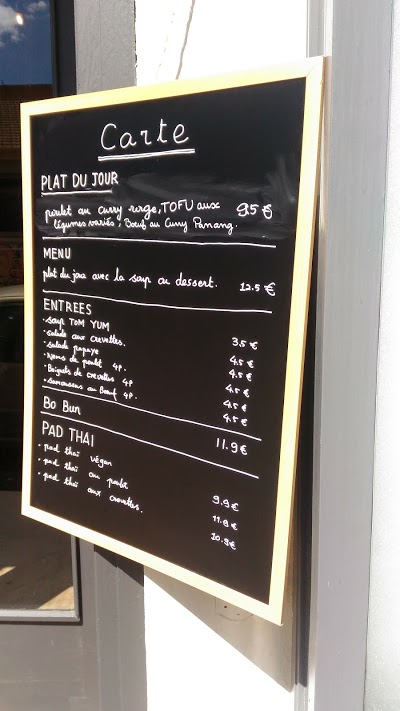 Carte
PLAT DU JOUR
poulet au curry rouge, TOFU aux 9.5 €
légumes variés, Boeuf au Curry Panang.
MENU
plat du jour avec la soup ou dessert. 12.5 €
ENTREES
• soup TOM YUM 3.5 €
• salade aux crevettes. 4.5 €
• salade papaye 4.5 €
• Nems de poulet 4P 4.5 €
• Beignets de crevettes 4P 4.5 €
• samoussas au Boeuf 4P. 4.5 €
Bo Bun 11.9 €
PAD THAI
• pad thaï végan 9.9 €
• pad thaï au poulet 11.9 €
• pad thaï aux crevettes. 10.9 €